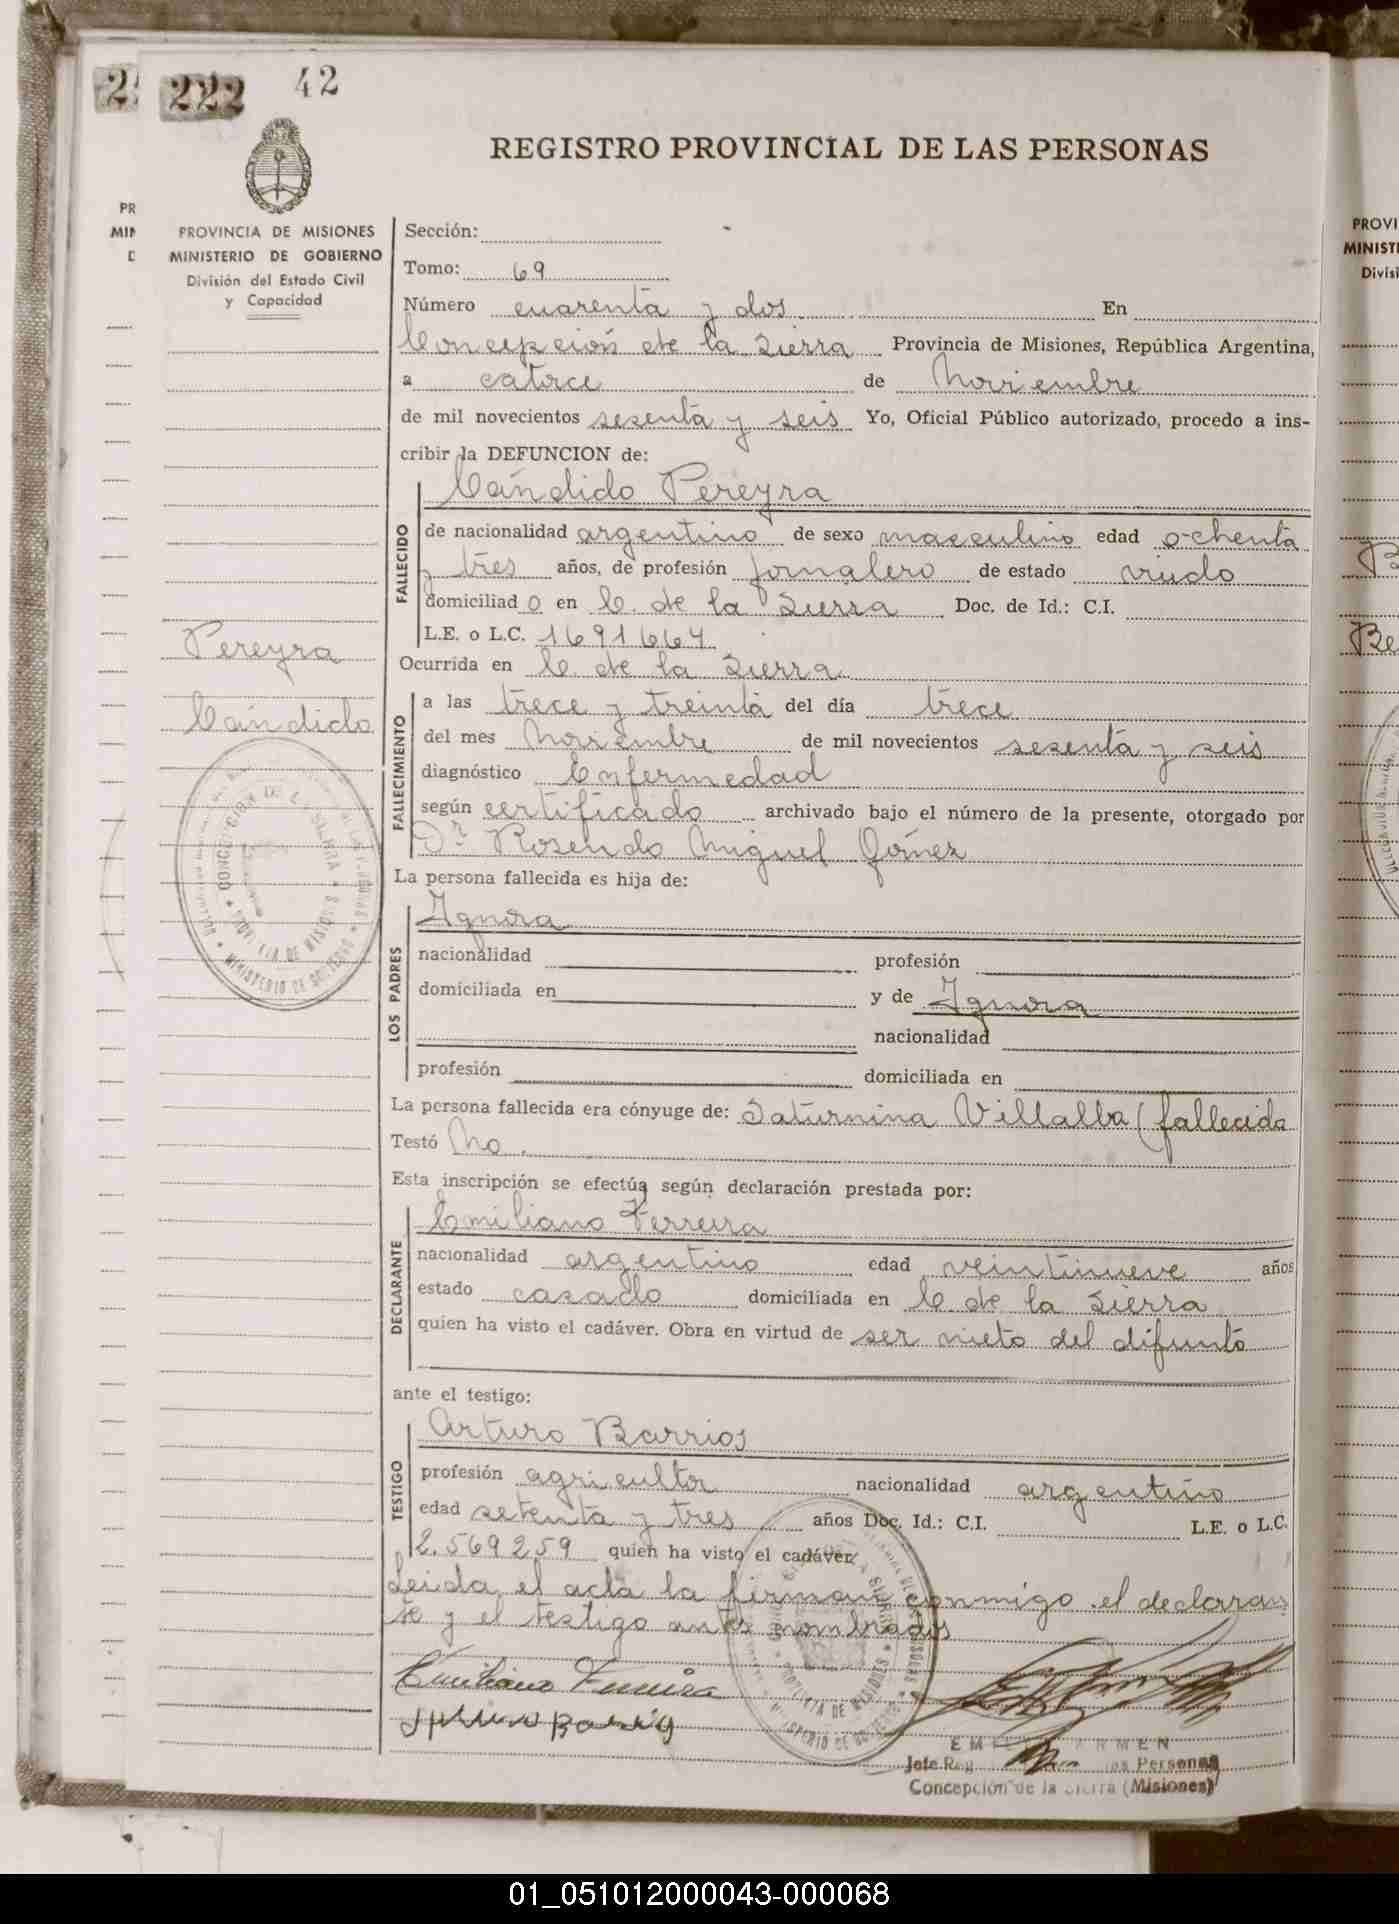 222 42
REGISTRO PROVINCIAL DE LAS PERSONAS
PROVINCIA DE MISIONES
MINISTERIO DE GOBIERNO
División del Estado Civil
y Capacidad
Pereyra
Cándido
Sección:
Tomo: 69
Número cuarenta y dos En
Concepción de la Sierra Provincia de Misiones, República Argentina,
a catorce de Noviembre
de mil novecientos sesenta y seis Yo, Oficial Público autorizado, procedo a ins-
cribir la DEFUNCION de:
Cándido Pereyra
FALLECIDO
de nacionalidad argentino de sexo masculino edad ochenta
y tres años, de profesión jornalero de estado viudo
domiciliado en C. de la Sierra Doc. de Id.: C.I.
L.E. o L.C. 1691664
Ocurrida en C. de la Sierra
FALLECIMIENTO
a las trece y treinta del día trece
del mes Noviembre de mil novecientos sesenta y seis
diagnóstico Enfermedad
según certificado archivado bajo el número de la presente, otorgado por
Dr. Rosendo Miguel Gómez
La persona fallecida es hija de:
LOS PADRES
Ignora
nacionalidad profesión
domiciliada en y de Ignora
nacionalidad
profesión domiciliada en
La persona fallecida era cónyuge de: Saturnina Villalba (fallecida
Testó No.
Esta inscripción se efectúa según declaración prestada por:
DECLARANTE
Emiliano Ferreira
nacionalidad argentino edad veintinueve años
estado casado domiciliada en C. de la Sierra
quien ha visto el cadáver. Obra en virtud de ser nieto del difunto
ante el testigo:
TESTIGO
Arturo Barrios
profesión agricultor nacionalidad argentino
edad setenta y tres años Doc. Id.: C.I. L.E. o L.C.
2.569259 quien ha visto el cadáver
Leida el acta la firman conmigo el declaran
te y el testigo antes nombrados
Emiliano Ferreira
Arturo Barrios
Jefe Reg. las Personas
Concepción de la Sierra (Misiones)
PROVI
MINIST
Divisi
01_051012000043-000068